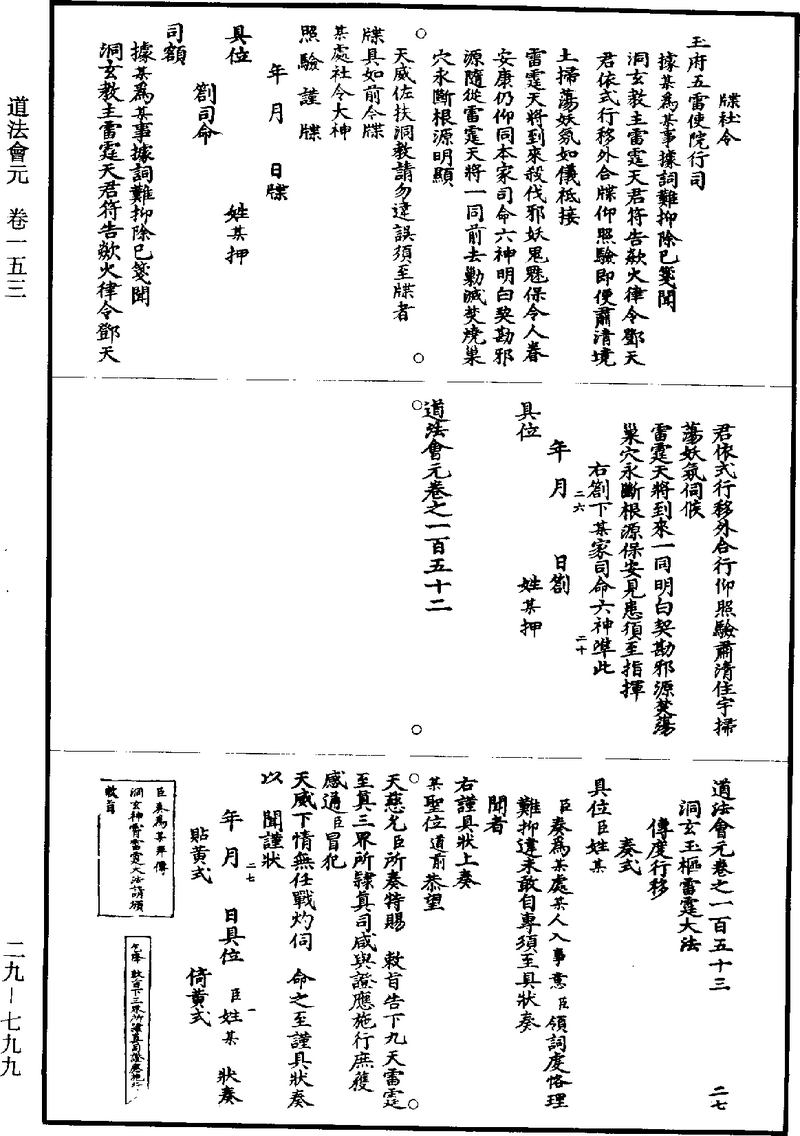 道法會元　卷一五三
二九－七九九
牒社令
玉府五雷使院行司
據某爲某事據詞難抑除已箋聞
洞玄教主雷霆天君符告歘火律令鄧天
君依式行移外合牒仰照驗即便肅清境
土掃蕩妖氛如儀祗接
雷霆天將到來殺伐邪妖鬼魅保令人眷
安康仍仰同本家司命六神明白契勘邪
源隨從雷霆天將一同前去勦滅焚燒巢
穴永斷根源明顯
天威佐扶洞教請勿違誤須至牒者
牒具如前令牒
某處社令大神
照驗謹牒
年　月　日牒
具位　姓某押
劄司命
司額
據某爲某事據詞難抑除已箋聞
洞玄教主雷霆天君符告歘火律令鄧天
君依式行移外合行仰照驗肅清住宇掃
蕩妖氛伺候
雷霆天將到來一同明白契勘邪源焚蕩
巢穴永斷根源保安見患須至指揮
右劄下某家司命六神準此
二六　二十
年　月　日劄
具位　姓某押
道法會元卷之一百五十二
道法會元卷之一百五十三　二七
洞玄玉樞雷霆大法
傳度行移
奏式
具位臣姓某
臣奏爲某處某人入事意臣領詞虔恪理
難抑違未敢自專須至具狀奏
聞者
右謹具狀上奏
某聖位道前恭望
天慈允臣所奏特賜　敕旨告下九天雷霆
至真三界所隸真司咸與證應施行庶獲
感通臣冒犯
天威下情無任戰灼伺　命之至謹具狀奏
以　聞謹狀
二七　一
年　月　日具位　臣姓某　狀奏
貼黃式　倚黃式
臣奏爲某弟傳
洞玄神霄雷霆大法請頒
敕旨
敕旨下三界所隸真司證應施行